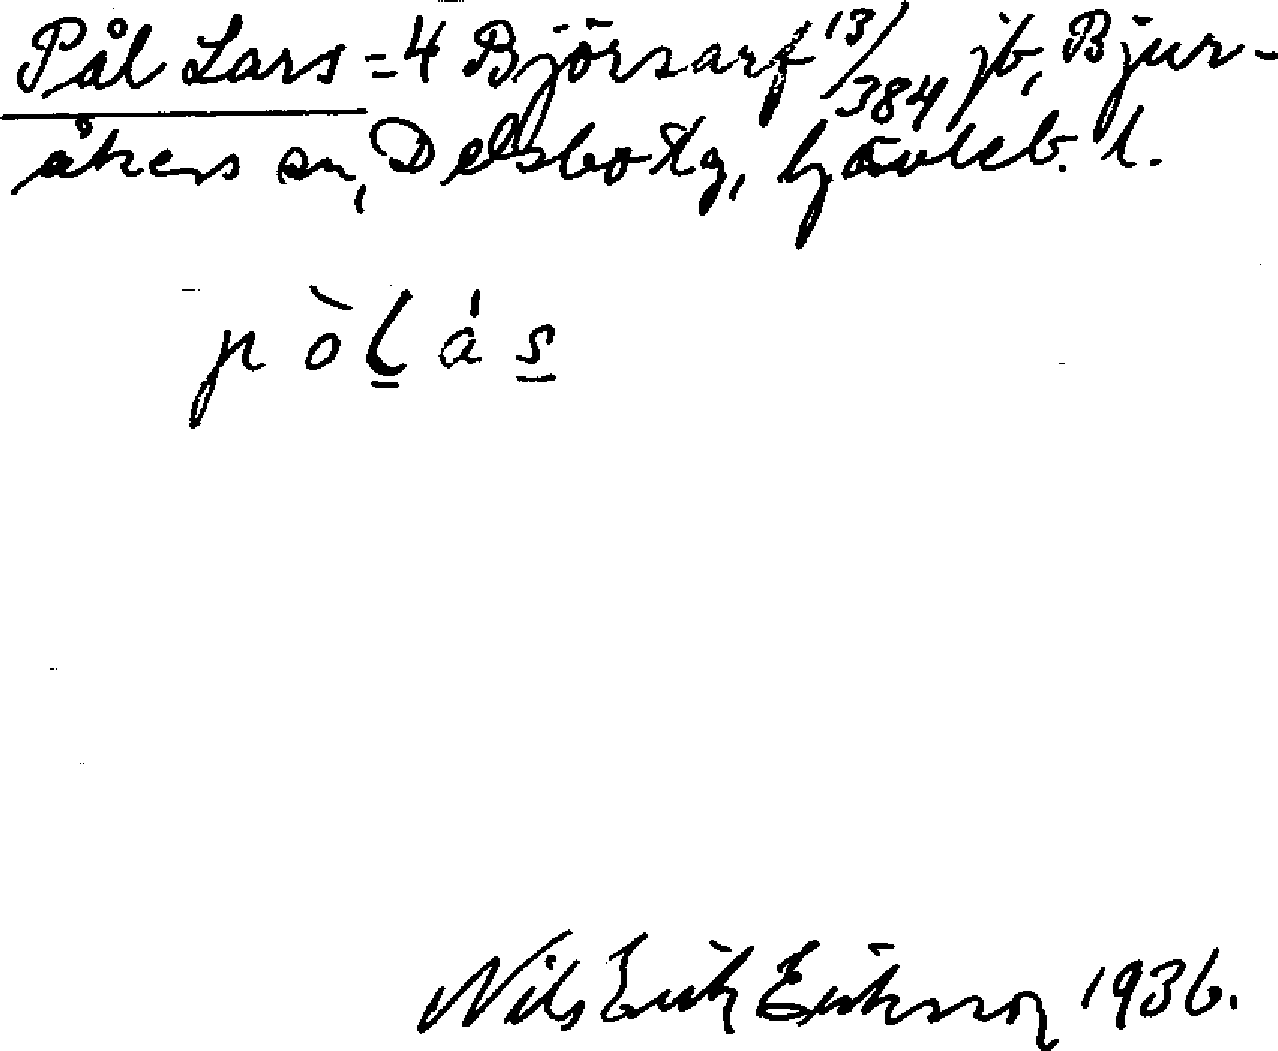 Pål Lars = 4 Björsarf 13/384 jb, Bjur-
åkers sn, Delsbo tg, Gävleb. l.
pòl̲ás̲
Nils Erik Eriksson 1936.